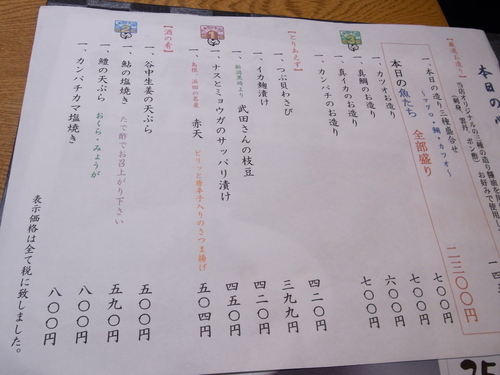 本日の
【厳選お造り】
当店オリジナルの三種の造り醤油を用
(刺身、雲丹、ポン酢) お好みで使用し
一、本日の造り三種盛合せ 七〇〇円
〜マグロ・鯛・カツオ〜
本日の魚たち 全部盛り 二二〇〇円
一、カツオお造り 七〇〇円
一、真鯛のお造り 六〇〇円
一、真イカのお造り 七〇〇円
一、カンパチのお造り
【とりあえず】
一、つぶ貝わさび 四二〇円
一、イカ麹漬け 三九九円
一、新潟黒崎より 武田さんの枝豆 四二〇円
一、ナスとミョウガのサッパリ漬け 四五〇円
一、島根、浜田の名産 赤天 ピリッと唐辛子入りのさつま揚げ 五〇四円
【酒の肴】
一、谷中生姜の天ぷら 五〇〇円
一、鮎の塩焼き たで酢でお召上がり下さい 五九〇円
一、鱧の天ぷら おくら・みょうが 八〇〇円
一、カンパチカマ塩焼き 八〇〇円
表示価格は全て税に致しました。